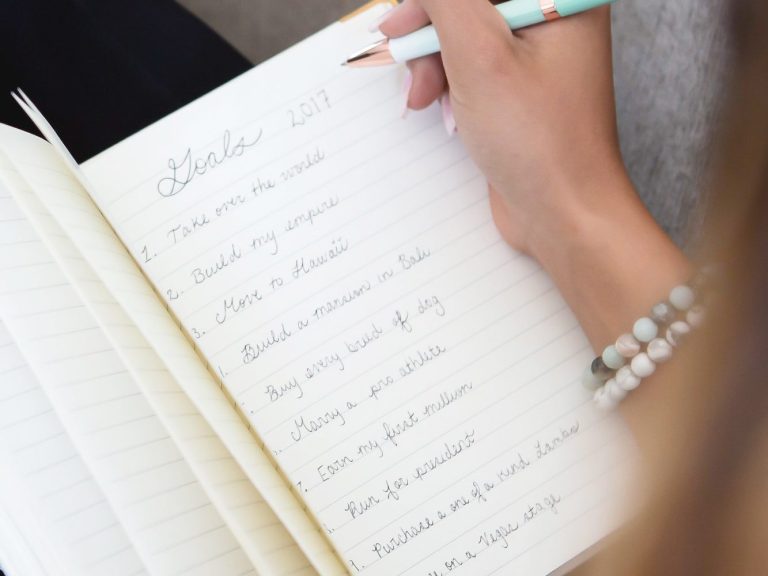 Goals 2017
1. Take over the world
2. Build my empire
3. Move to Hawaii
Build a mansion in Bali
Buy every breed of dog
Marry a pro athlete
7. Earn my first million
Run for president
Purchase a one of a kind Lambo
on a Vegas stage